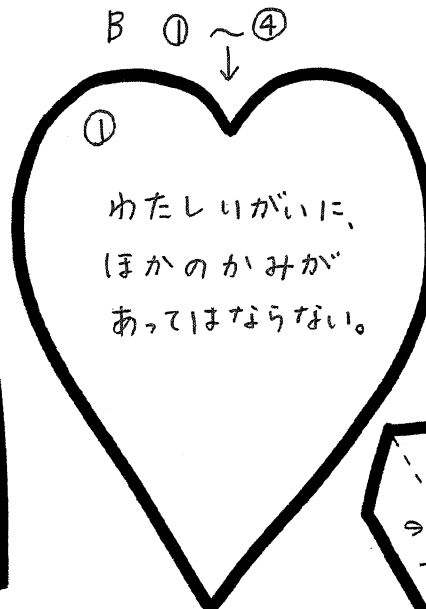 B ①〜④
①
わたしいがいに、
ほかのかみが
あってはならない。
の